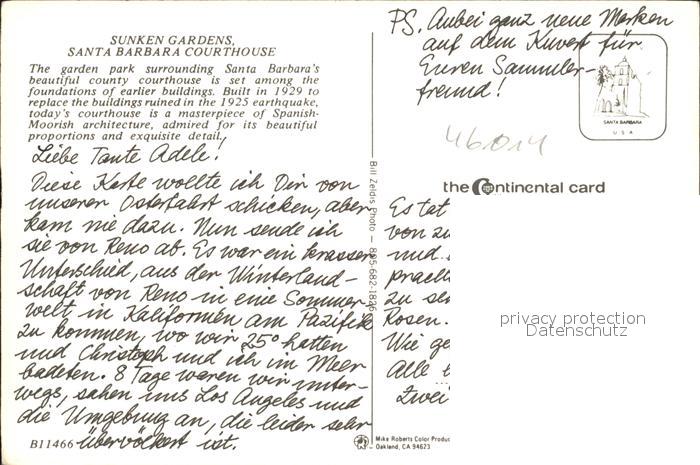 SUNKEN GARDENS,
SANTA BARBARA COURTHOUSE
The garden park surrounding Santa Barbara's
beautiful county courthouse is set among the
foundations of earlier buildings. Built in 1929 to
replace the buildings ruined in the 1925 earthquake,
today's courthouse is a masterpiece of Spanish-
Moorish architecture, admired for its beautiful
proportions and exquisite detail.
Liebe Tante Adele!
Diese Karte wollte ich Dir von
unserer Osterfahrt schicken, aber
kam nie dazu. Nun sende ich
sie von Reno ab. Es war ein krasser
Unterschied, aus der Winterland-
schaft von Reno in eine Sommer-
welt in Kalifornien am Pazifik
zu kommen, wo wir 25° hatten
und Christoph und ich im Meer
badeten. 8 Tage waren wir unter-
wegs, sahen uns Los Angeles und
die Umgebung an, die leider sehr
übervölkert ist.
B11466
Bill Zeldis Photo — 805-682-1826
PS. Anbei ganz neue Marken
auf dem Kuvert für
Euren Sammler-
freund!
SANTA BARBARA
USA
46014
the Continental card
Es tat
von zu
und
prach
zu se
Rosen.
Wie ge
Alle
Zwei
privacy protection
Datenschutz
Mike Roberts Color Produc
Oakland, CA 94623